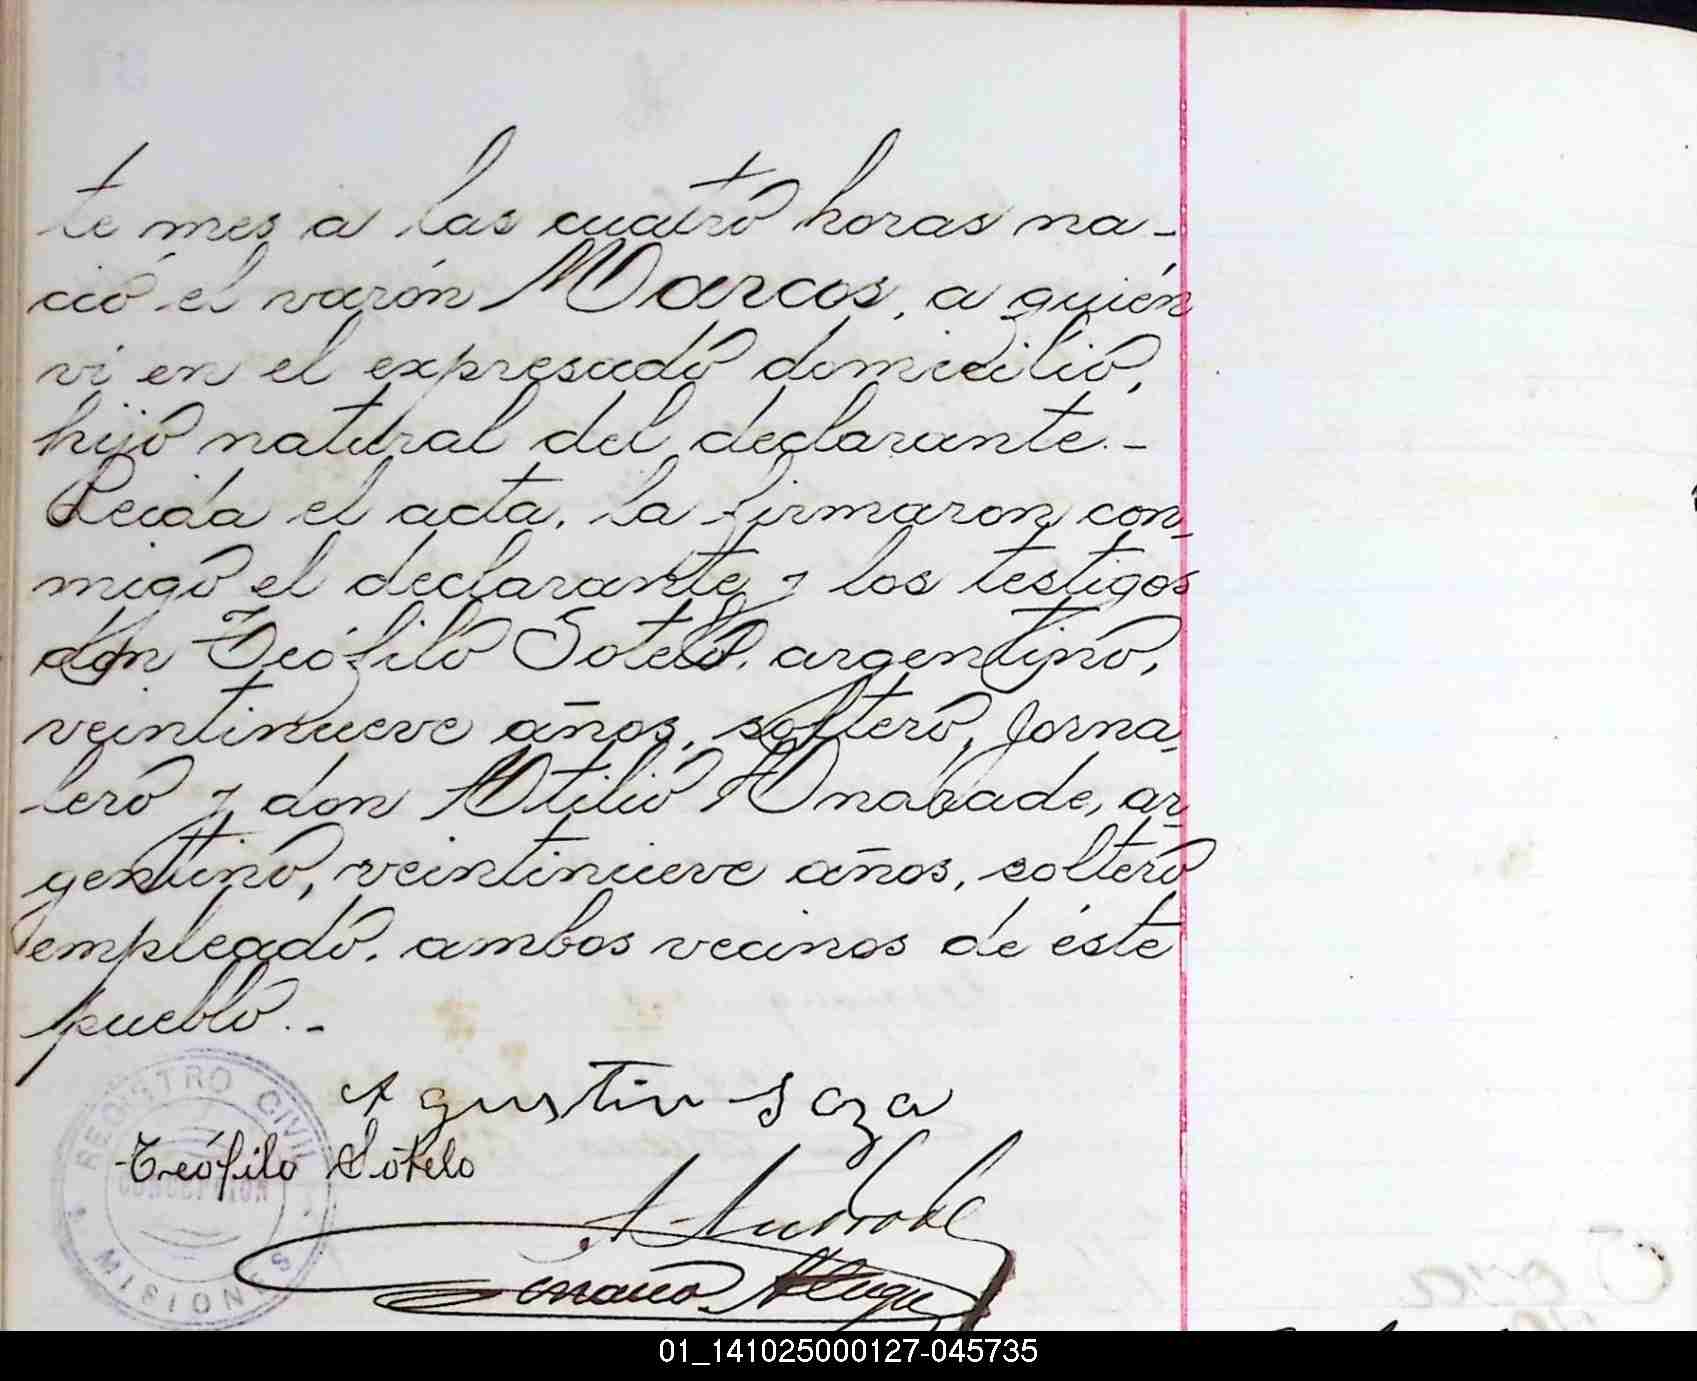 te mes a las cuatro horas na-
ció el varón Marcos, a quién
vi en el expresado domicilio,
hijo natural del declarante.-
Leida el acta, la firmaron con-
migo el declarante y los testigos
don Teófilo Sotelo, argentino,
veintinueve años, soltero, jorna-
lero y don Atilio Andrade, ar-
gentino, veintinueve años, soltero
empleado, ambos vecinos de éste
pueblo.-
Agustin Soza
REGISTRO CIVIL
Teófilo Sotelo
CONCEPCION
MISIONES
01_141025000127-045735